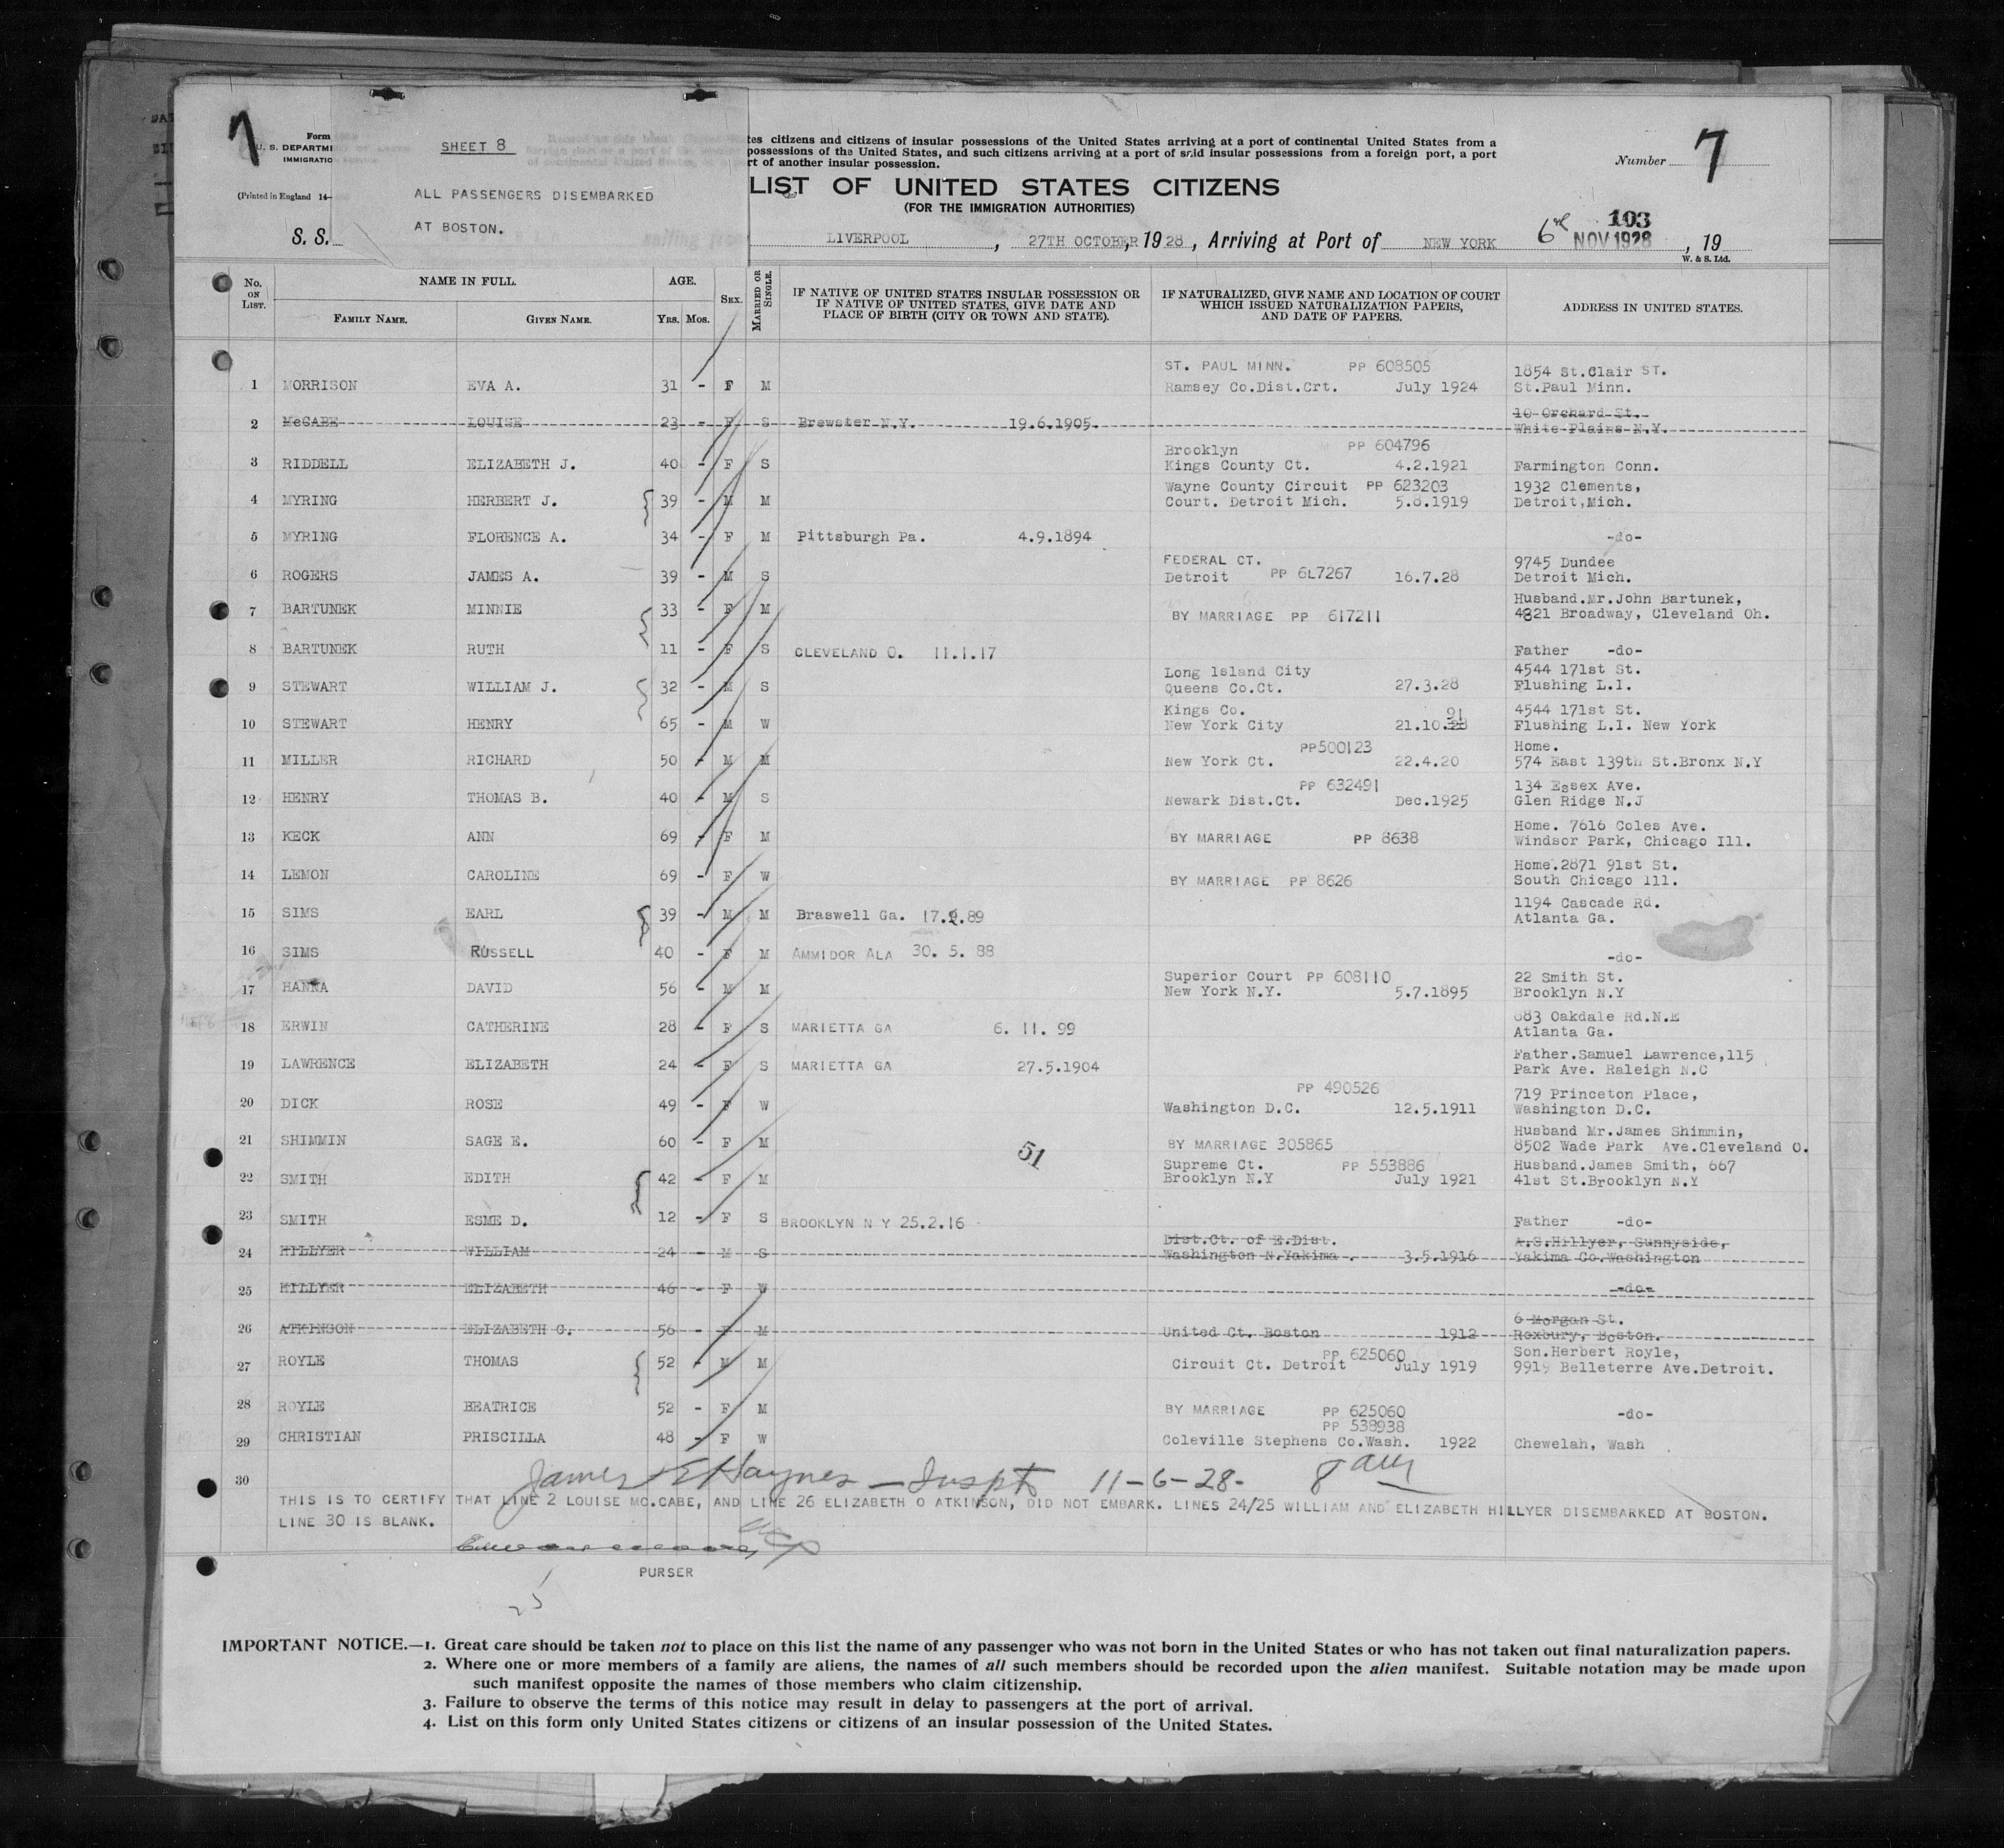 7
Form
U. S. DEPARTM
IMMIGRATIO
(Printed in England 14—
S. S.
SHEET 8
ALL PASSENGERS DISEMBARKED
AT BOSTON.
tes citizens and citizens of insular possessions of the United States arriving at a port of continental United States from a
possessions of the United States, and such citizens arriving at a port of said insular possessions from a foreign port, a port
rt of another insular possession.
Number 7
LIST OF UNITED STATES CITIZENS
(FOR THE IMMIGRATION AUTHORITIES)
LIVERPOOL, 27TH OCTOBER, 1928, Arriving at Port of NEW YORK 6th 103 NOV 1928, 19
W. & S. Ltd.
No. ON LIST. NAME IN FULL. FAMILY NAME. GIVEN NAME. AGE. Yrs. Mos. SEX. MARRIED OR SINGLE. IF NATIVE OF UNITED STATES INSULAR POSSESSION OR IF NATIVE OF UNITED STATES, GIVE DATE AND PLACE OF BIRTH (CITY OR TOWN AND STATE). IF NATURALIZED, GIVE NAME AND LOCATION OF COURT WHICH ISSUED NATURALIZATION PAPERS, AND DATE OF PAPERS. ADDRESS IN UNITED STATES.
ST. PAUL MINN. PP 608505 1854 St.Clair ST.
1 MORRISON EVA A. 31 - F M Ramsey Co.Dist.Crt. July 1924 St.Paul Minn.
10 Orchard St.
2 McCABE LOUISE 23 - F S Brewster N.Y. 19.6.1905. White Plains N.Y.
Brooklyn PP 604796
3 RIDDELL ELIZABETH J. 40 - F S Kings County Ct. 4.2.1921 Farmington Conn.
Wayne County Circuit PP 623203 1932 Clements,
4 MYRING HERBERT J. 39 - M M Court. Detroit Mich. 5.8.1919 Detroit,Mich.
5 MYRING FLORENCE A. 34 - F M Pittsburgh Pa. 4.9.1894 -do-
FEDERAL CT. 9745 Dundee
6 ROGERS JAMES A. 39 - M S Detroit PP 6L7267 16.7.28 Detroit Mich.
Husband.Mr.John Bartunek,
7 BARTUNEK MINNIE 33 - F M BY MARRIAGE PP 617211 4821 Broadway, Cleveland Oh.
8 BARTUNEK RUTH 11 - F S CLEVELAND O. 11.1.17 Father -do-
Long Island City 4544 171st St.
9 STEWART WILLIAM J. 32 - M S Queens Co.Ct. 27.3.28 Flushing L.I.
Kings Co. 91 4544 171st St.
10 STEWART HENRY 65 - M W New York City 21.10.28 Flushing L.I. New York
PP500123 Home.
11 MILLER RICHARD 50 - M M New York Ct. 22.4.20 574 East 139th St.Bronx N.Y
PP 632491 134 Essex Ave.
12 HENRY THOMAS B. 40 - M S Newark Dist.Ct. Dec.1925 Glen Ridge N.J
Home. 7616 Coles Ave.
13 KECK ANN 69 - F M BY MARRIAGE PP 8638 Windsor Park, Chicago Ill.
Home.2871 91st St.
14 LEMON CAROLINE 69 - F W BY MARRIAGE PP 8626 South Chicago Ill.
1194 Cascade Rd.
15 SIMS EARL 39 - M M Braswell Ga. 17.9.89 Atlanta Ga.
16 SIMS RUSSELL 40 - F M AMMIDOR ALA 30. 5. 88 -do-
Superior Court PP 608110 22 Smith St.
17 HANNA DAVID 56 - M M New York N.Y. 5.7.1895 Brooklyn N.Y
683 Oakdale Rd.N.E
18 ERWIN CATHERINE 28 - F S MARIETTA GA 6. 11. 99 Atlanta Ga.
Father.Samuel Lawrence,115
19 LAWRENCE ELIZABETH 24 - F S MARIETTA GA 27.5.1904 Park Ave. Raleigh N.C
PP 490526 719 Princeton Place,
20 DICK ROSE 49 - F W Washington D.C. 12.5.1911 Washington D.C.
Husband Mr.James Shimmin,
21 SHIMMIN SAGE E. 60 - F M 51 BY MARRIAGE 305865 8502 Wade Park Ave.Cleveland O.
Supreme Ct. PP 553886 Husband.James Smith, 667
22 SMITH EDITH 42 - F M Brooklyn N.Y July 1921 41st St.Brooklyn N.Y
23 SMITH ESME D. 12 - F S BROOKLYN N Y 25.2.16 Father -do-
Dist.Ct. of E.Dist. A.S.Hillyer, Sunnyside,
24 HILLYER WILLIAM 24 - M S Washington N.Yakima . 3.5.1916 Yakima Co.Washington
25 HILLYER ELIZABETH 46 - F W -do-
6 Morgan St.
26 ATKINSON ELIZABETH O. 56 - F M United Ct. Boston 1912 Roxbury, Boston.
PP 625060 Son.Herbert Royle,
27 ROYLE THOMAS 52 - M M Circuit Ct. Detroit July 1919 9919 Belleterre Ave.Detroit.
28 ROYLE BEATRICE 52 - F M BY MARRIAGE PP 625060 -do-
PP 538938
29 CHRISTIAN PRISCILLA 48 - F W Coleville Stephens Co.Wash. 1922 Chewelah, Wash
30 James E Haynes — Inspt 11-6-28- 8 am
THIS IS TO CERTIFY THAT LINE 2 LOUISE MC.CABE, AND LINE 26 ELIZABETH O ATKINSON, DID NOT EMBARK. LINES 24/25 WILLIAM AND ELIZABETH HILLYER DISEMBARKED AT BOSTON.
LINE 30 IS BLANK.
PURSER
25
IMPORTANT NOTICE.—1. Great care should be taken not to place on this list the name of any passenger who was not born in the United States or who has not taken out final naturalization papers.
2. Where one or more members of a family are aliens, the names of all such members should be recorded upon the alien manifest. Suitable notation may be made upon
such manifest opposite the names of those members who claim citizenship.
3. Failure to observe the terms of this notice may result in delay to passengers at the port of arrival.
4. List on this form only United States citizens or citizens of an insular possession of the United States.